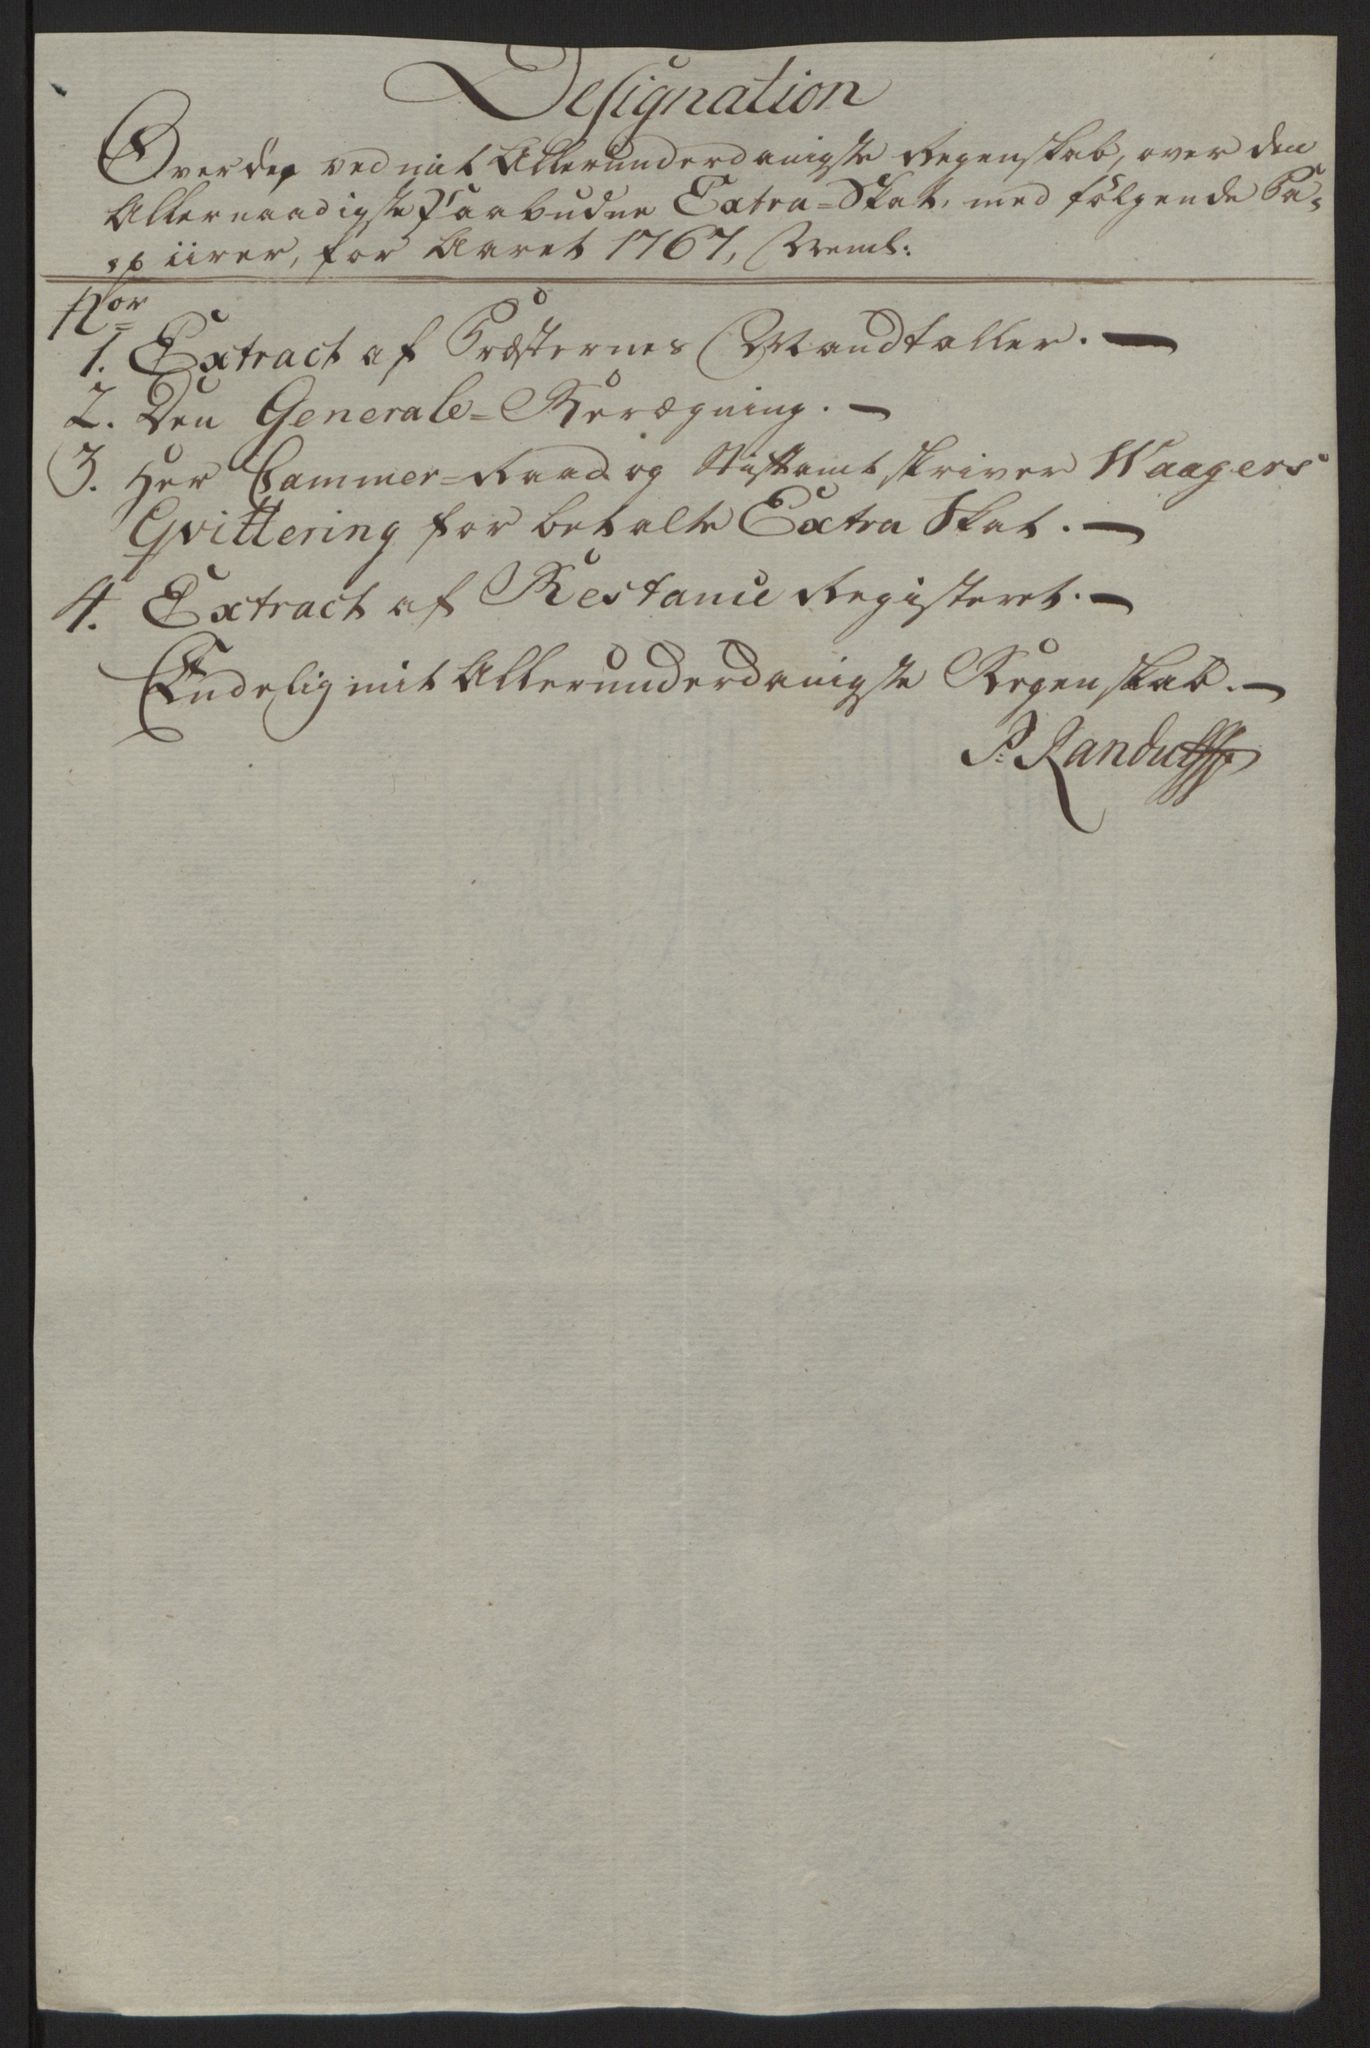 Designation
Over de, ved mit Allerunderdanigste Regenskab, over den
Allernaadigste Paabudne Extra=Skat, med følgende Pa=
piirer, for Aaret 1767, Neml:
Nor
1. Extract af Præsternes Mandtaller. —
2. Den Generale=Beregning. —
3. Herr Cammer=Raad og Stiftamtskriver Waagers
Qvittering for betalte Extra Skat. —
4. Extract af Restance Registeret. —
Endelig mit Allerunderdanigste Regenskab. —
P: Randulff